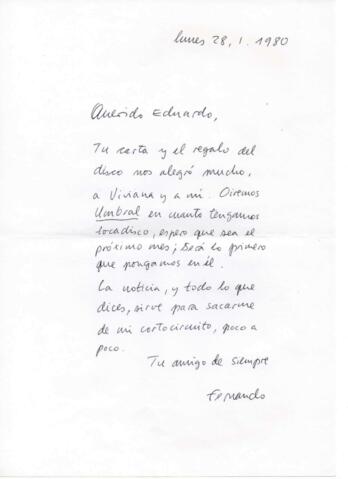 lunes 28, 1. 1980
Querido Eduardo,
Tu carta y el regalo del
disco nos alegró mucho,
a Viviana y a mí. Oiremos
Umbral en cuanto tengamos
tocadisco, espero que sea el
próximo mes; será lo primero
que pongamos en él.
La noticia, y todo lo que
dices, sirve para sacarme
de mi cortocircuito, poco a
poco.
Tu amigo de siempre
Fernando